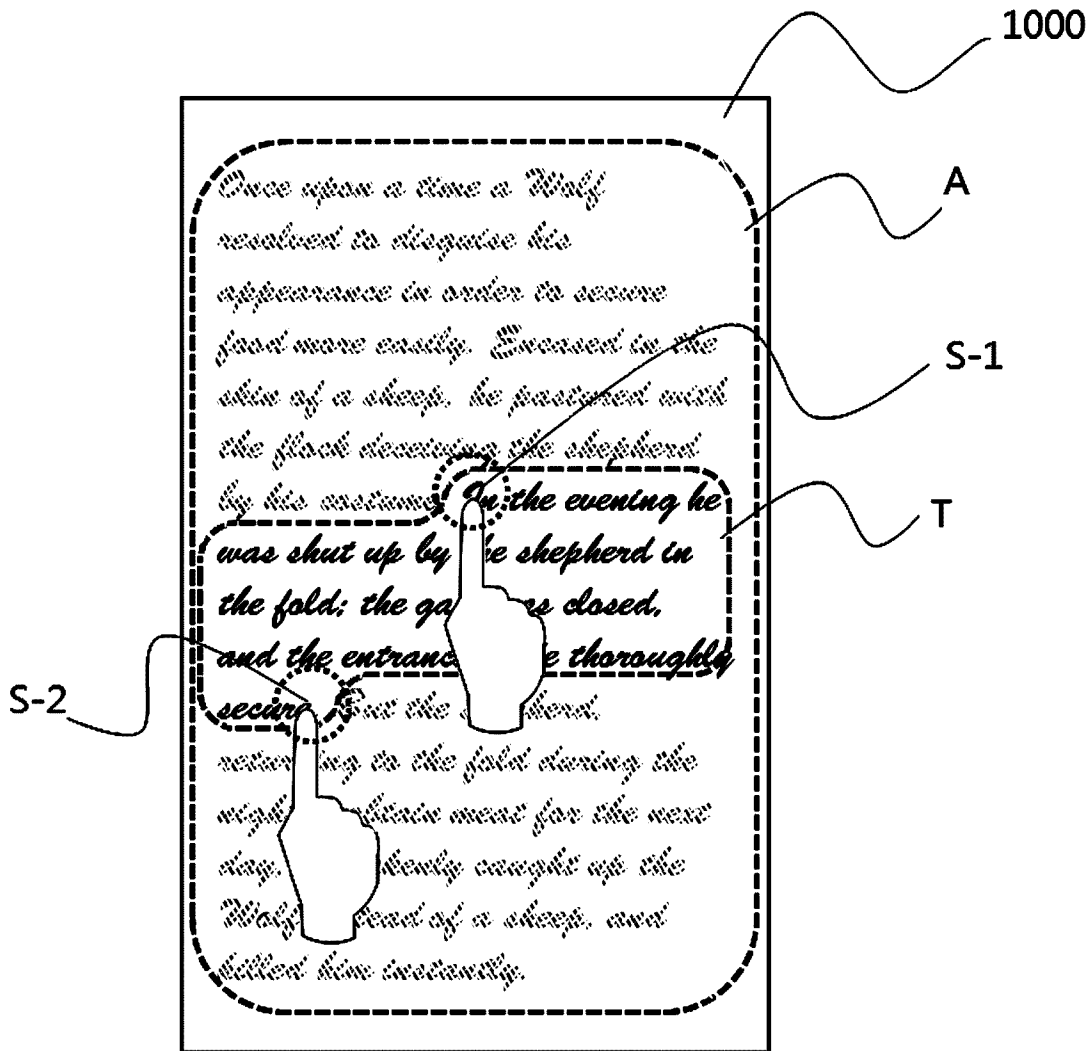 1000
Once upon a time a Wolf
A
resolved to disguise his
appearance in order to secure
food more easily. Encased in the
S-1
skin of a sheep, he pastured with
the flock deceiving the shepherd
by his costume. In the evening he
T
was shut up by the shepherd in
the fold; the closed,
and the thoroughly
S-2
secure. But the
to the fold during the
meat for the next
day, caught up the
Wolf of a sheep, and
killed him instantly.